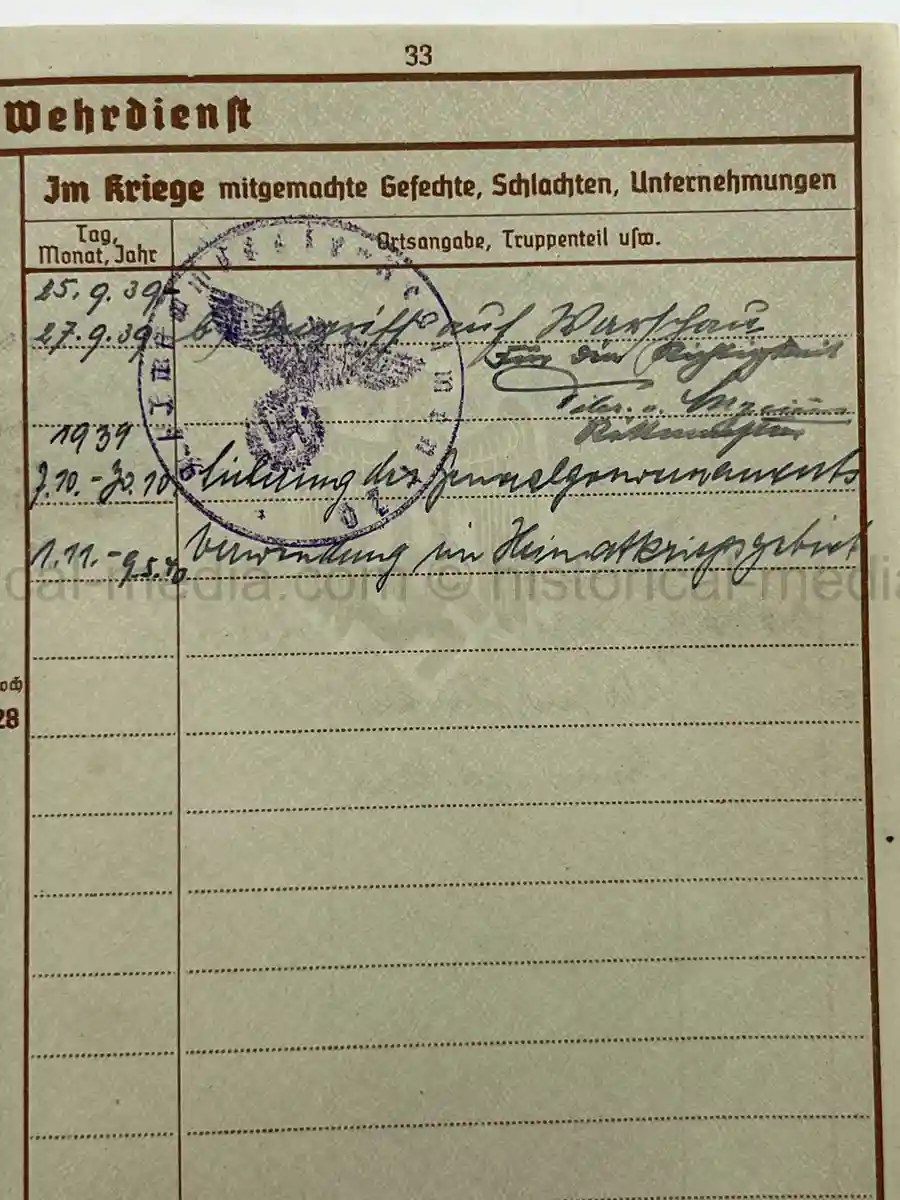 33
Wehrdienst
Im Kriege mitgemachte Gefechte, Schlachten, Unternehmungen
Tag,
Monat, Jahr
Ortsangabe, Truppenteil usw.
25.9.39
27.9.39 b) Angriff auf Warschau
Für die Richtigkeit
Rittmeister
1939
7.10.-30.10. Sicherung des Generalgouvernements
1.11.-9.5.40 Verwendung im Heimatkriegsgebiet
cal-media.com © historical-media
och
28